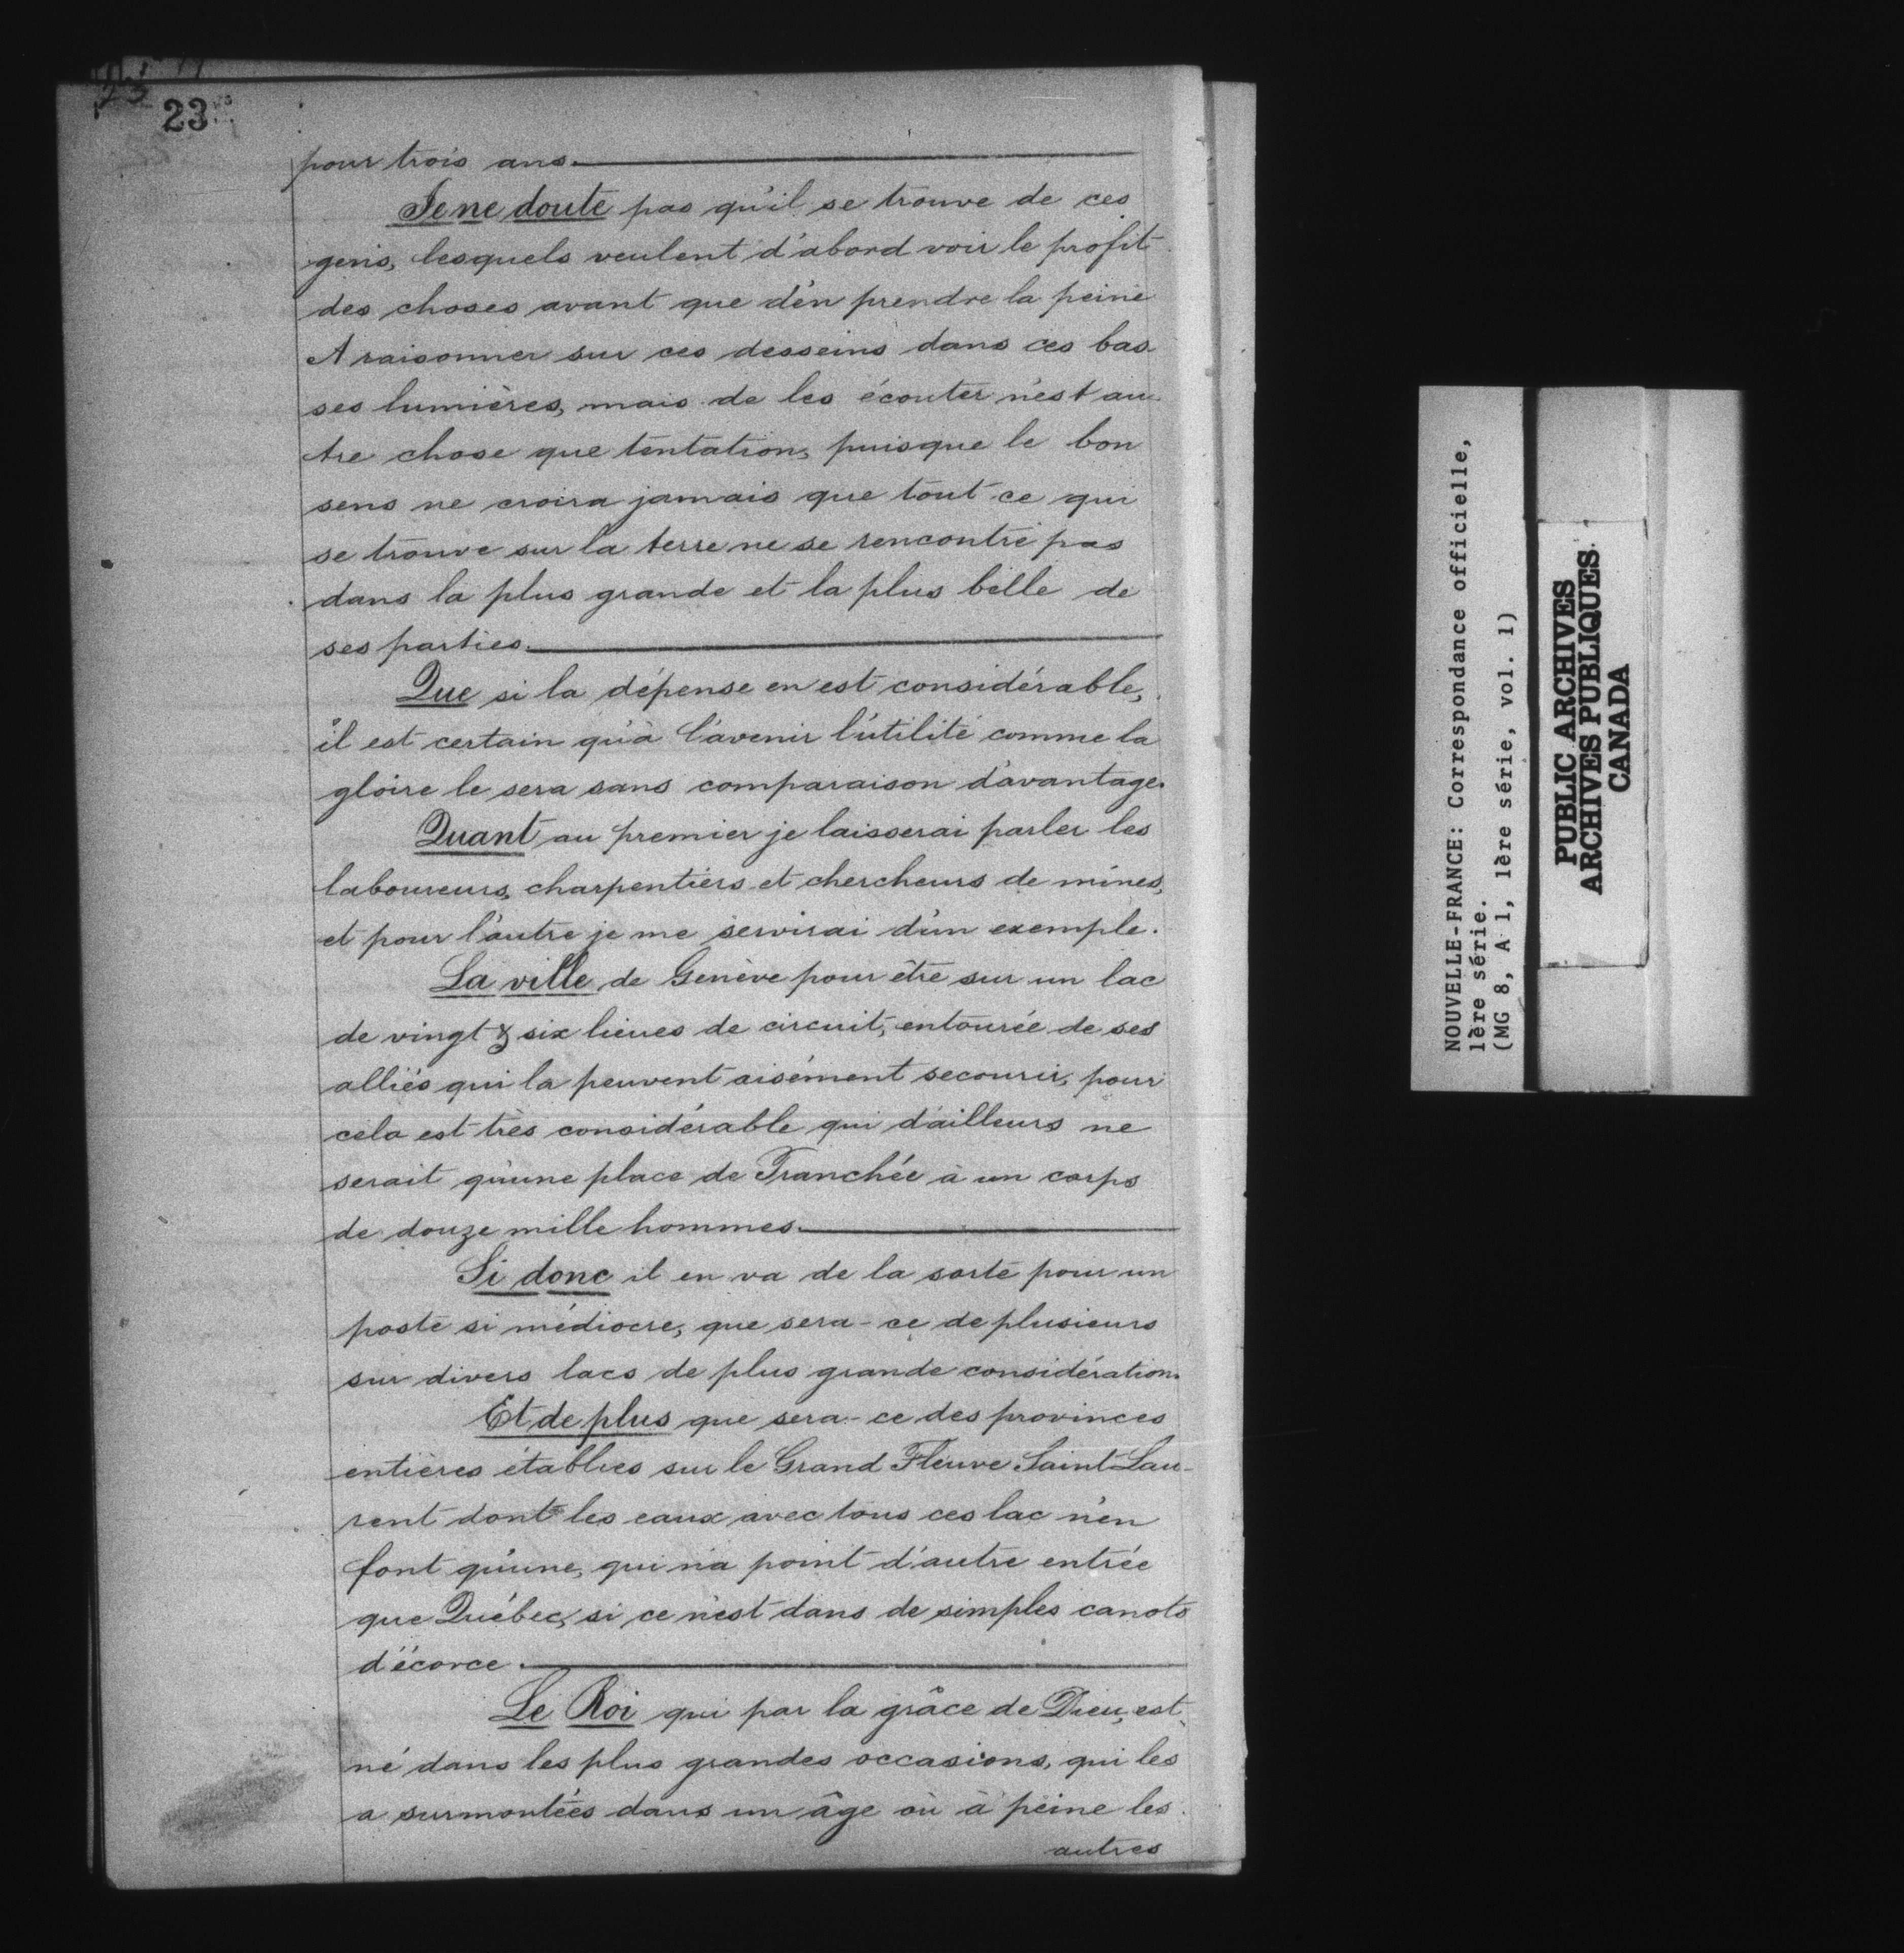 23
pour trois ans.
Je ne doute pas qu'il se trouve de ces
gens, lesquels veulent d'abord voir le profit
des choses avant que d'en prendre la peine
A raisonner sur ces desseins dans ces bas
ses lumières, mais de les écouter n'est au
tre chose que tentation, puisque le bon
sens ne croira jamais que tout ce qui
se trouve sur la terre ne se rencontre pas
dans la plus grande et la plus belle de
ses parties.
Que si la dépense en est considérable,
il est certain qu'à l'avenir l'utilité comme la
gloire le sera sans comparaison d'avantage.
Quant au premier je laisserai parler les
laboureurs, charpentiers et chercheurs de mines,
et pour l'autre je me servirai d'un exemple.
La ville de Genève pour être sur un lac
de vingt & six lieues de circuit, entourée de ses
alliés qui la peuvent aisément secourir, pour
cela est très considérable qui d'ailleurs ne
serait qu'une place de Tranchée à un corps
de douze mille hommes.
Si donc il en va de la sorte pour un
poste si médiocre, que sera-ce de plusieurs
sur divers lacs de plus grande considération.
Et de plus que sera-ce des provinces
entières établies sur le Grand Fleuve Saint Lau-
rent dont les eaux avec tous ces lac n'en
font qu'une, qui n'a point d'autre entrée
que Québec, si ce n'est dans de simples canots
d'écorce.
Le Roi qui par la grâce de Dieu, est
né dans les plus grandes occasions, qui les
a surmontées dans un âge où à peine les
autres
NOUVELLE-FRANCE: Correspondance officielle,
1ère série.
(MG 8, A 1, 1ère série, vol. 1)
PUBLIC ARCHIVES
ARCHIVES PUBLIQUES
CANADA